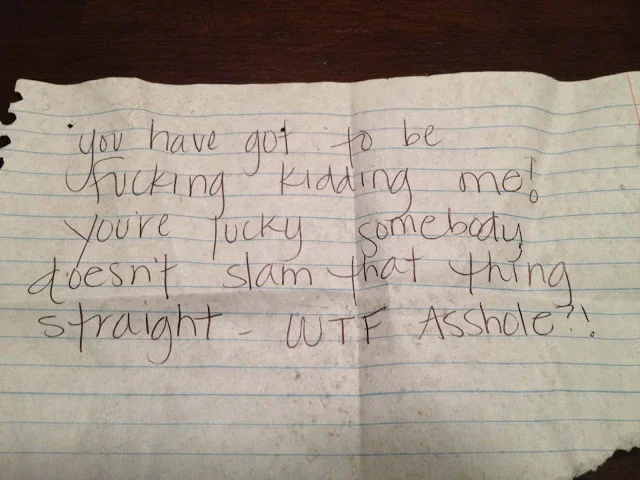 you have got to be
fucking kidding me!
you're lucky somebody
doesn't slam that thing
straight - WTF Asshole?!